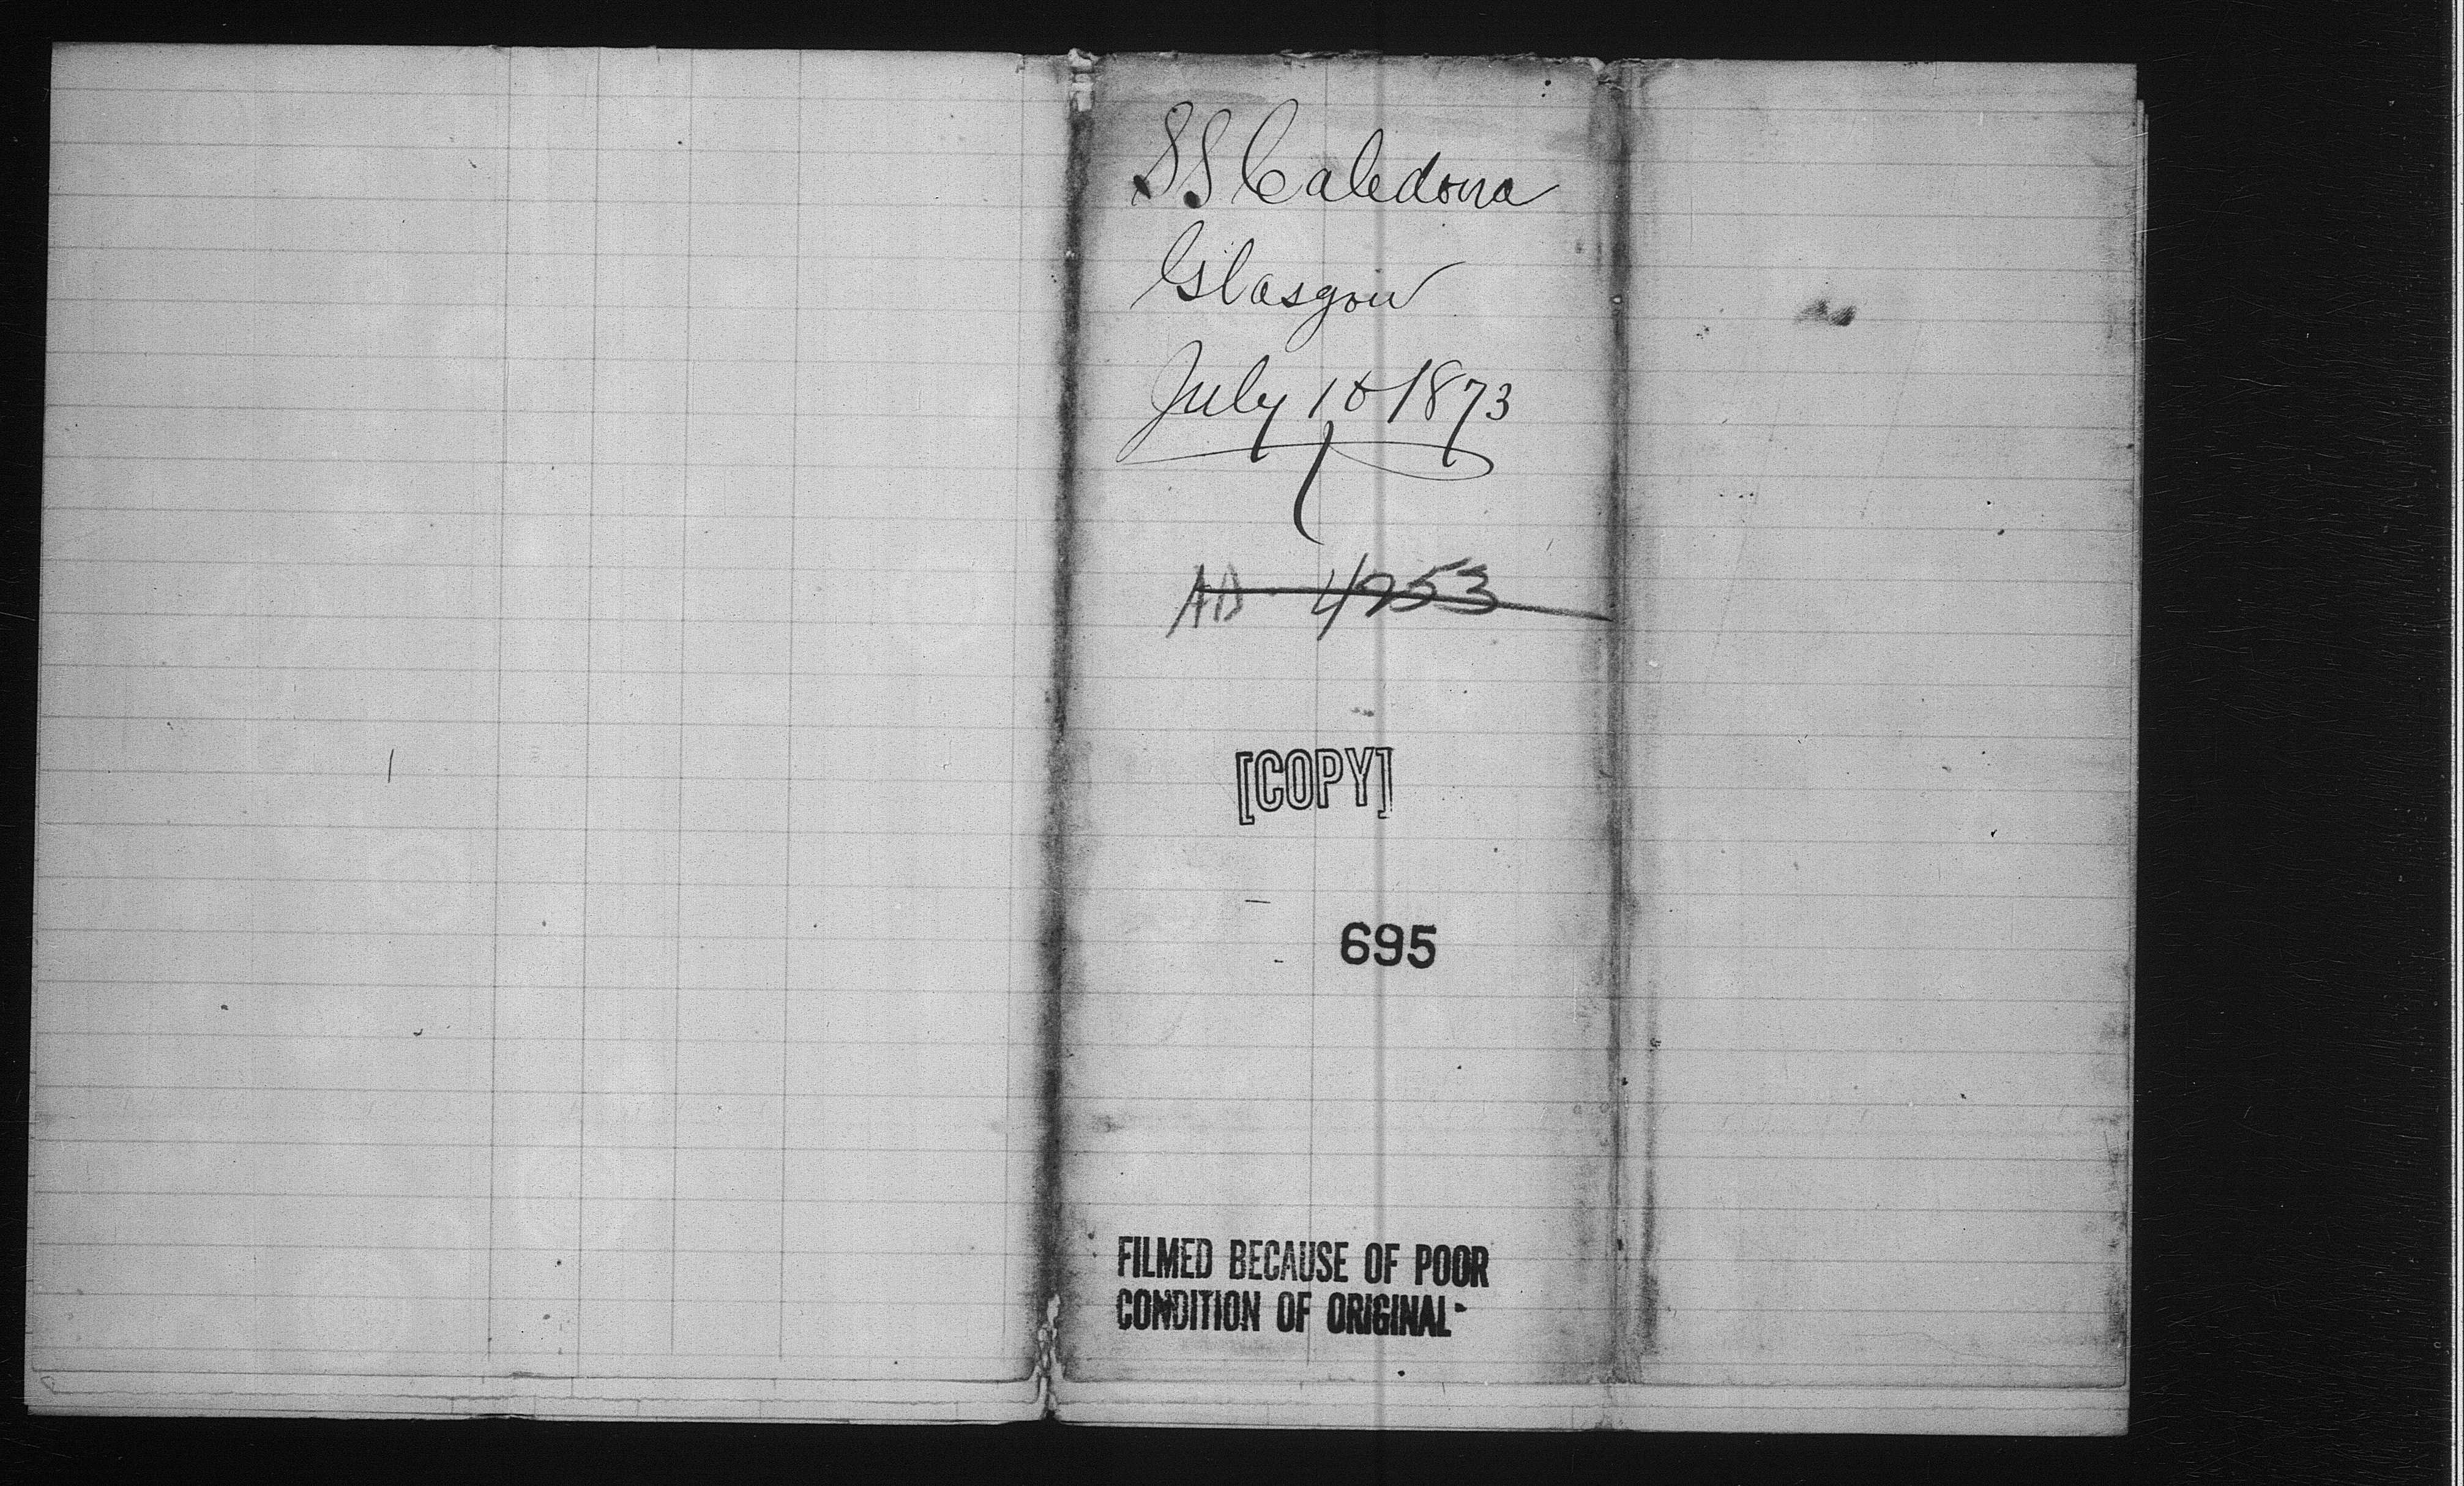 SS Caledonia
Glasgow
July 10 1873
AD 4953
[COPY]
695
FILMED BECAUSE OF POOR
CONDITION OF ORIGINAL